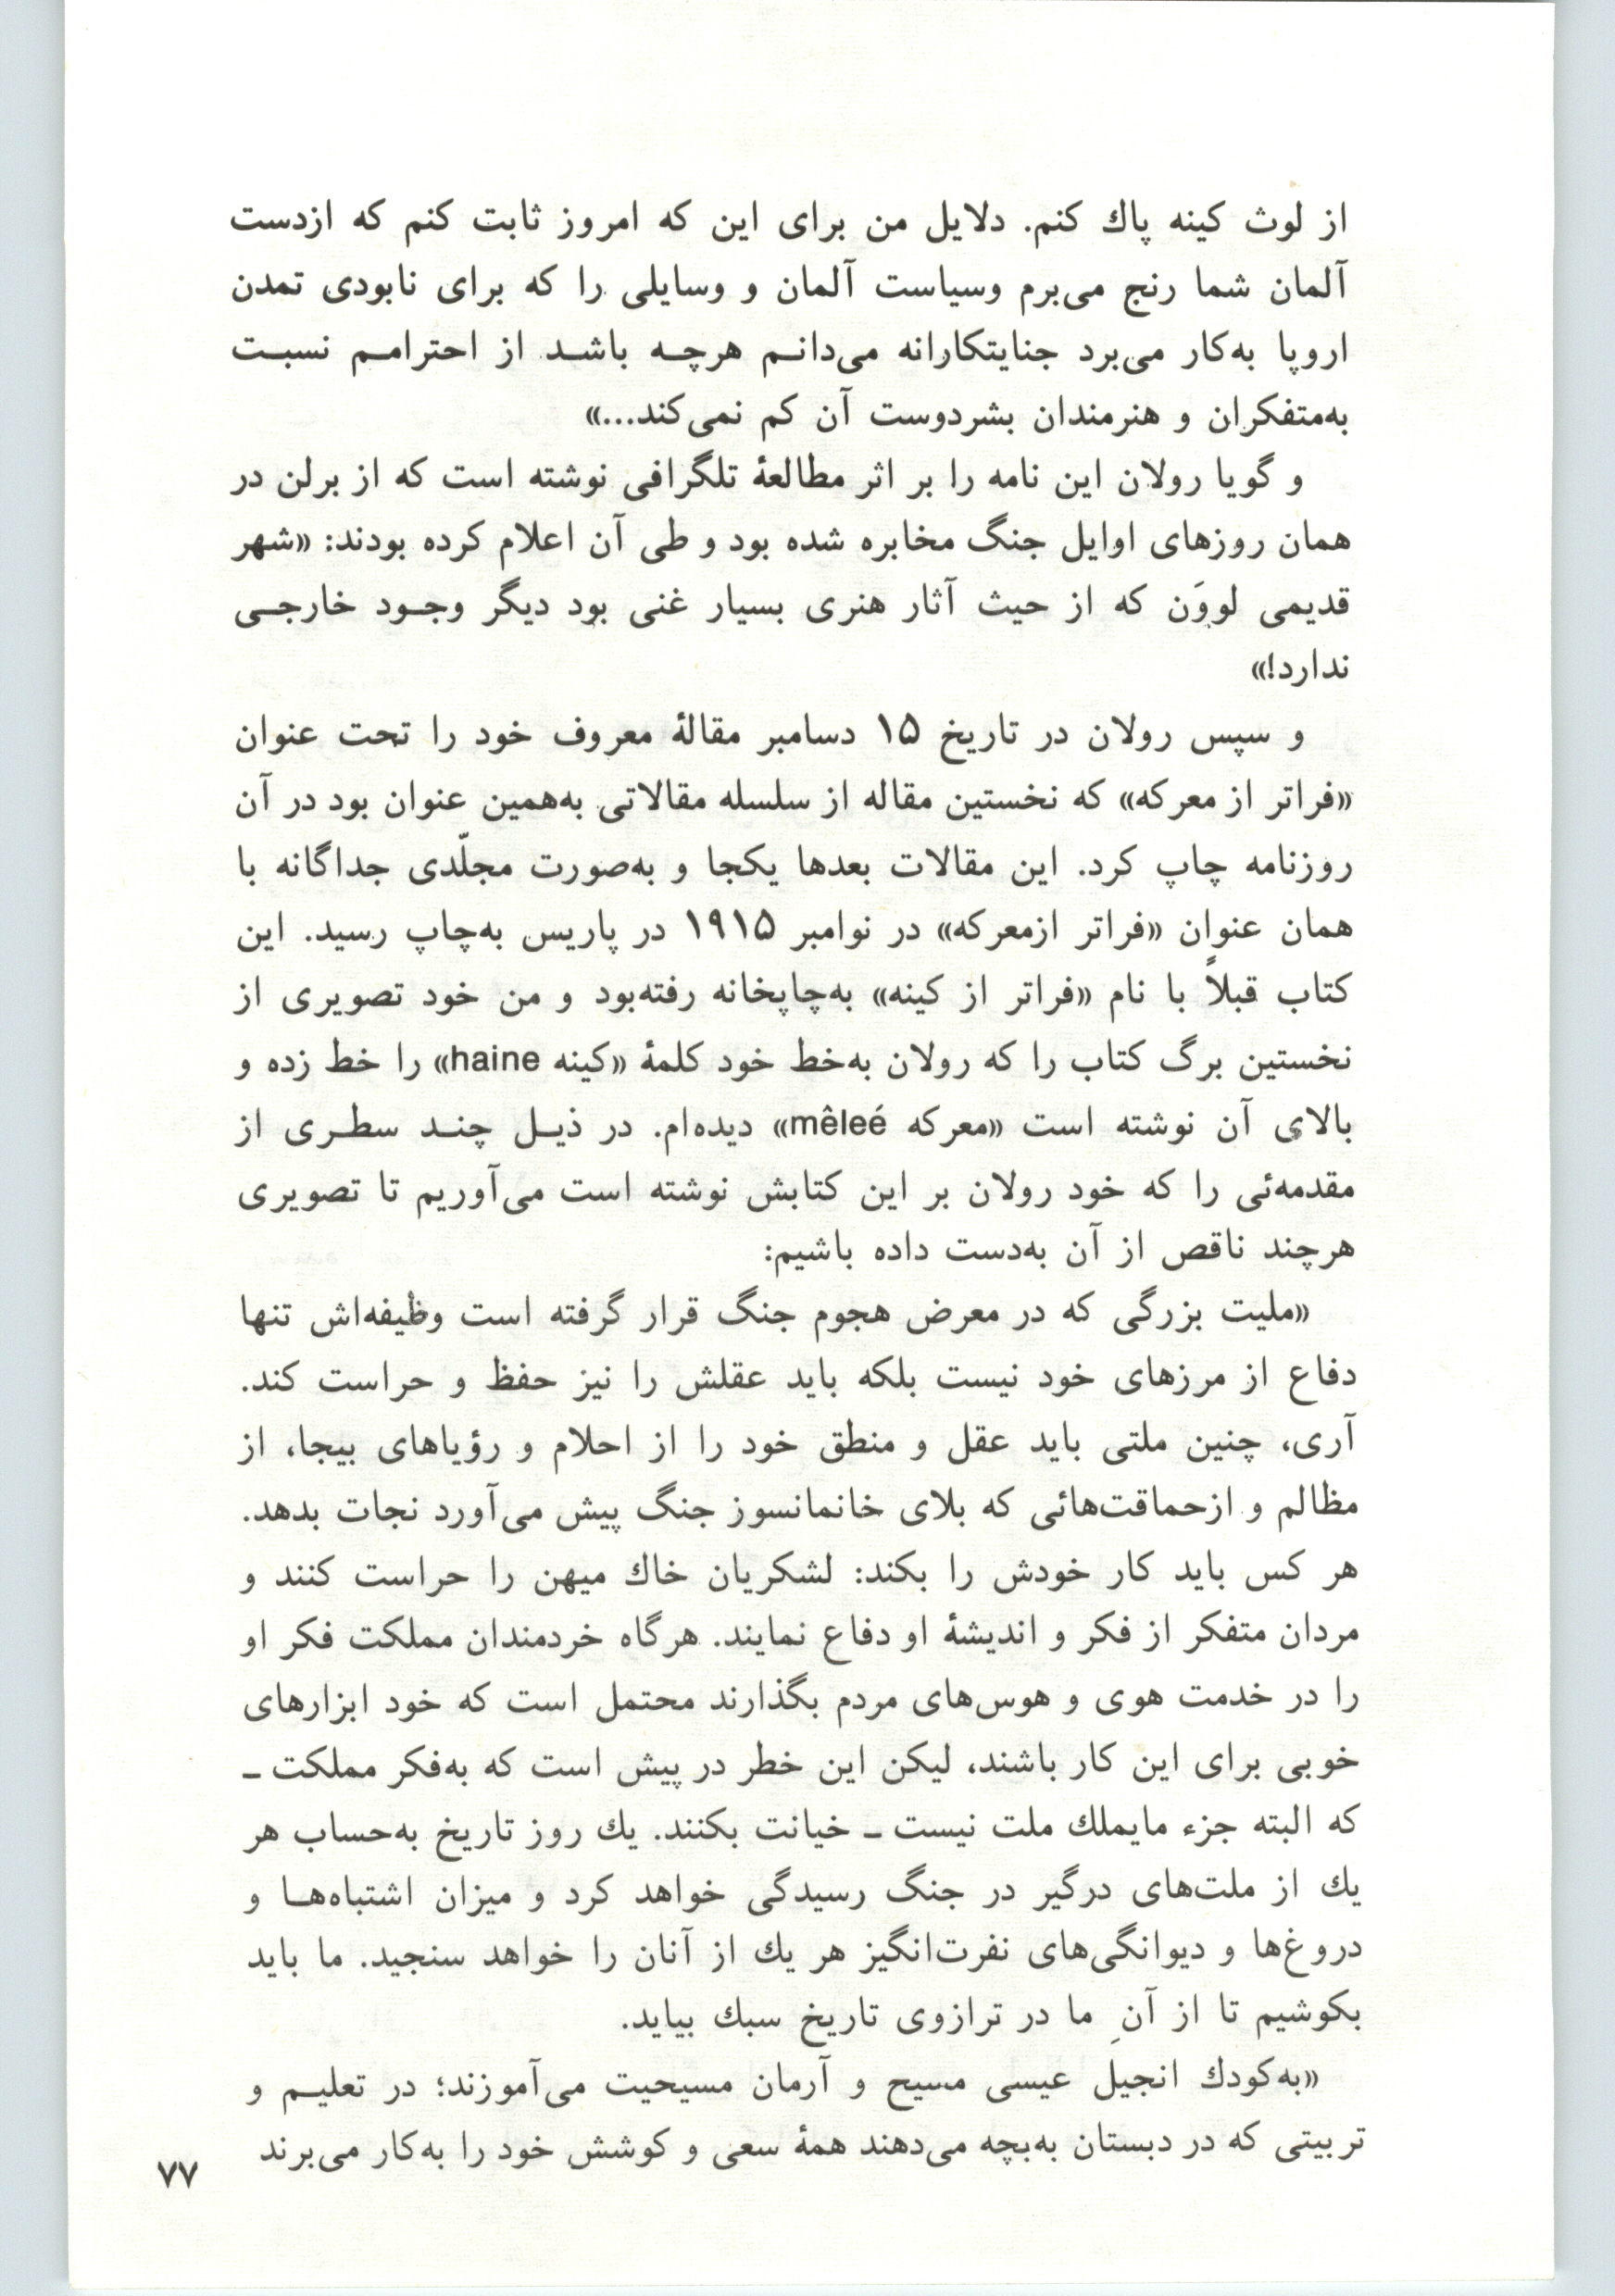 از لوث کینه پاك کنم. دلایل من برای این که امروز ثابت کنم که ازدست
آلمان شما رنج می‌برم وسیاست آلمان و وسایلی را که برای نابودی تمدن
اروپا به‌کار می‌برد جنایتکارانه می‌دانـم هرچـه باشـد از احترامـم نسبـت
به‌متفکران و هنرمندان بشردوست آن کم نمی‌کند...»
و گویا رولان این نامه را بر اثر مطالعهٔ تلگرافی نوشته است که از برلن در
همان روزهای اوایل جنگ مخابره شده بود و طی آن اعلام کرده بودند: «شهر
قدیمی لووَن که از حیث آثار هنری بسیار غنی بود دیگر وجـود خارجـی
ندارد!»
و سپس رولان در تاریخ ۱۵ دسامبر مقالهٔ معروف خود را تحت عنوان
«فراتر از معرکه» که نخستین مقاله از سلسله مقالاتی به‌همین عنوان بود در آن
روزنامه چاپ کرد. این مقالات بعدها یکجا و به‌صورت مجلّدی جداگانه با
همان عنوان «فراتر ازمعرکه» در نوامبر ۱۹۱۵ در پاریس به‌چاپ رسید. این
کتاب قبلاً با نام «فراتر از کینه» به‌چاپخانه رفته‌بود و من خود تصویری از
نخستین برگ کتاب را که رولان به‌خط خود کلمهٔ «کینه haine» را خط زده و
بالای آن نوشته است «معرکه mêleé» دیده‌ام. در ذیـل چنـد سطـری از
مقدمه‌ئی را که خود رولان بر این کتابش نوشته است می‌آوریم تا تصویری
هرچند ناقص از آن به‌دست داده باشیم:
«ملیت بزرگی که در معرض هجوم جنگ قرار گرفته است وظیفه‌اش تنها
دفاع از مرزهای خود نیست بلکه باید عقلش را نیز حفظ و حراست کند.
آری، چنین ملتی باید عقل و منطق خود را از احلام و رؤیاهای بیجا، از
مظالم و ازحماقت‌هائی که بلای خانمانسوز جنگ پیش می‌آورد نجات بدهد.
هر کس باید کار خودش را بکند: لشکریان خاك میهن را حراست کنند و
مردان متفکر از فکر و اندیشهٔ او دفاع نمایند. هرگاه خردمندان مملکت فکر او
را در خدمت هوی و هوس‌های مردم بگذارند محتمل است که خود ابزارهای
خوبی برای این کار باشند، لیکن این خطر در پیش است که به‌فکر مملکت ـ
که البته جزء مایملك ملت نیست ـ خیانت بکنند. یك روز تاریخ به‌حساب هر
یك از ملت‌های درگیر در جنگ رسیدگی خواهد کرد و میزان اشتباه‌هـا و
دروغ‌ها و دیوانگی‌های نفرت‌انگیز هر یك از آنان را خواهد سنجید. ما باید
بکوشیم تا از آنِ ما در ترازوی تاریخ سبك بیاید.
«به‌کودك انجیل عیسی مسیح و آرمان مسیحیت می‌آموزند؛ در تعلیـم و
تربیتی که در دبستان به‌بچه می‌دهند همهٔ سعی و کوشش خود را به‌کار می‌برند
۷۷